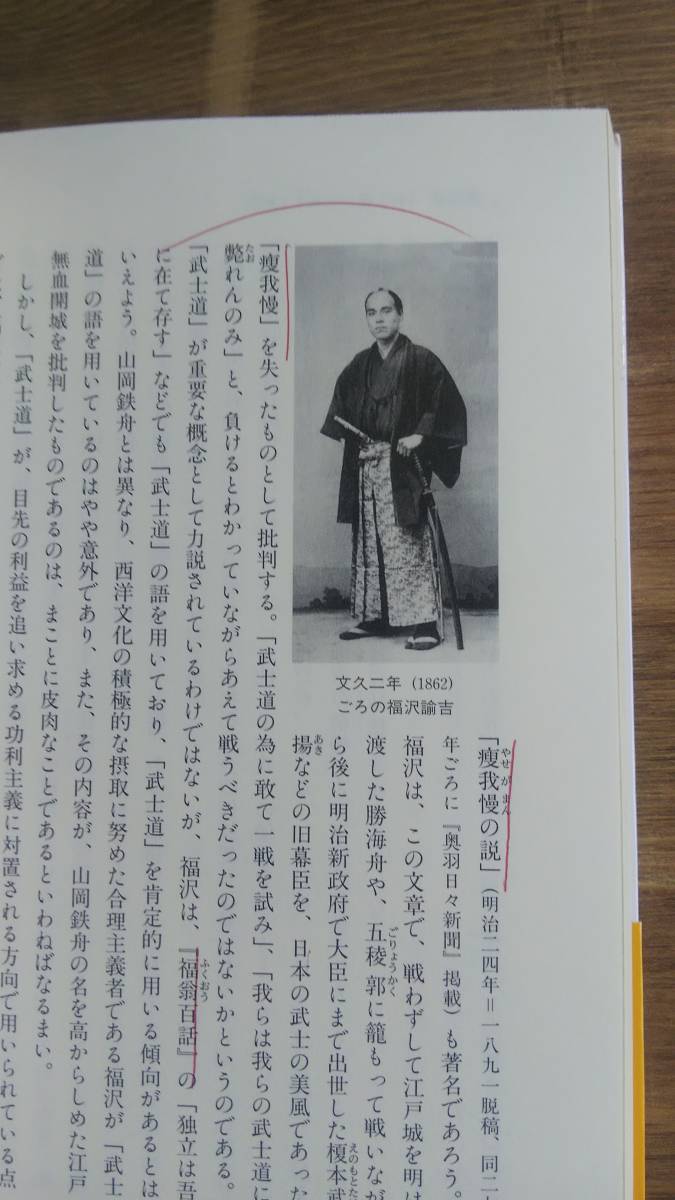 文久二年（1862）
ごろの福沢諭吉
やせがまん
「瘦我慢の説」（明治二四年＝一八九一脱稿、同二
年ごろに『奥羽日々新聞』掲載）も著名であろう。
福沢は、この文章で、戦わずして江戸城を明け
ごりょうかく
渡した勝海舟や、五稜郭に籠もって戦いなが
えのもとた
ら後に明治新政府で大臣にまで出世した榎本武
あき
揚などの旧幕臣を、日本の武士の美風であった
「瘦我慢」を失ったものとして批判する。「武士道の為に敢て一戦を試み」、「我らは我らの武士道に
たお
斃れんのみ」と、負けるとわかっていながらあえて戦うべきだったのではないかというのである。
ふくおう
「武士道」が重要な概念として力説されているわけではないが、福沢は、『福翁百話』の「独立は吾
に在て存す」などでも「武士道」の語を用いており、「武士道」を肯定的に用いる傾向があるとは
いえよう。山岡鉄舟とは異なり、西洋文化の積極的な摂取に努めた合理主義者である福沢が「武士
道」の語を用いているのはやや意外であり、また、その内容が、山岡鉄舟の名を高からしめた江戸
無血開城を批判したものであるのは、まことに皮肉なことであるといわねばなるまい。
しかし、「武士道」が、目先の利益を追い求める功利主義に対置される方向で用いられている点